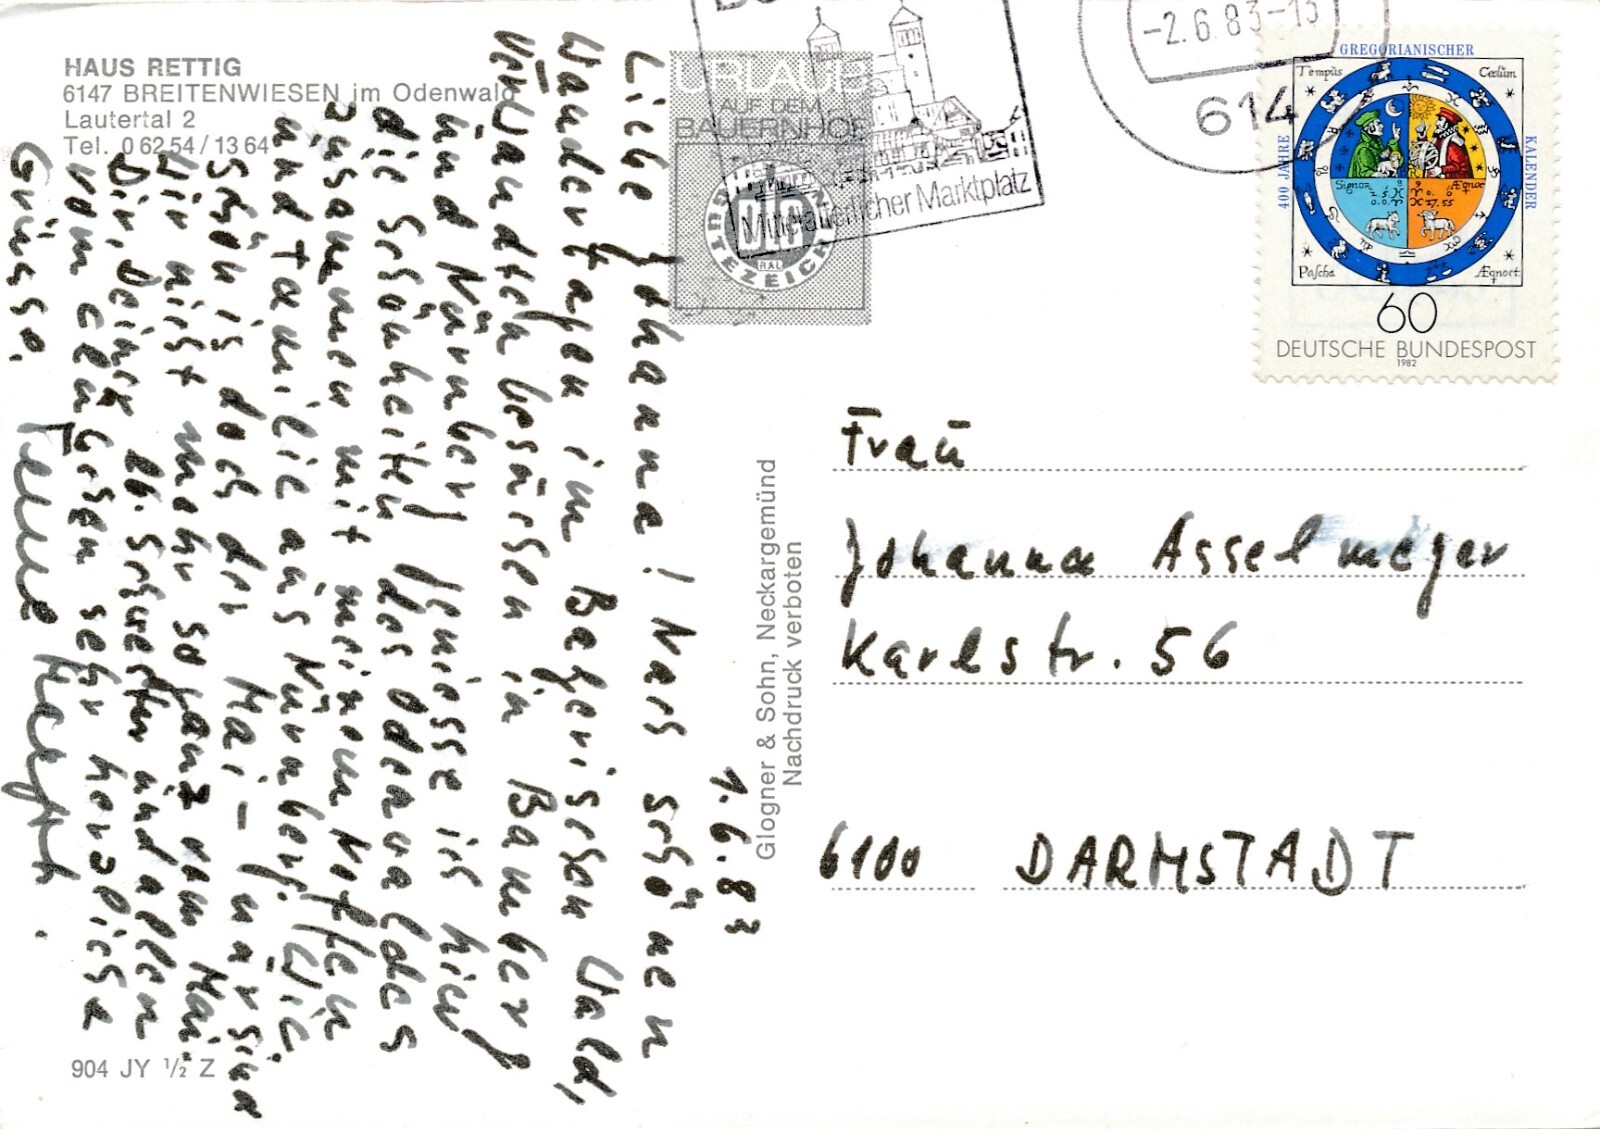 HAUS RETTIG
6147 BREITENWIESEN im Odenwald
Lautertal 2
Tel. 0 62 54 / 13 64
URLAUB
AUF DEM
BAUERNHOF
DLG
GÜTEZEICHEN
RAL
Mittelalterlicher Marktplatz
-2.6.83-13
614
GREGORIANISCHER
400 JAHRE
KALENDER
Tempus
Cœlum
Signor
Æqnor
Pascha
Æqnoct
60
DEUTSCHE BUNDESPOST
1982
1.6.83
Liebe Johanna! Nach schönen
Wandertagen im Bayerischen Wald,
Verwandten besuchen in Bamberg
und Nürnberg genieße ich hier
die Schönheiten des Odenwaldes
zusammen mit meinem
und Familie aus Nürnberg. Wie
schön is doch der Mai – nur sind
wir nicht mehr so ganz vom Mai.
Dir, Deiner lb. Schwester und allen
von
sehr herzliche
Grüsse.
Glogner & Sohn, Neckargemünd
Nachdruck verboten
Frau
Johanna Asselmeyer
Karlstr. 56
6100 DARMSTADT
904 JY ½ Z